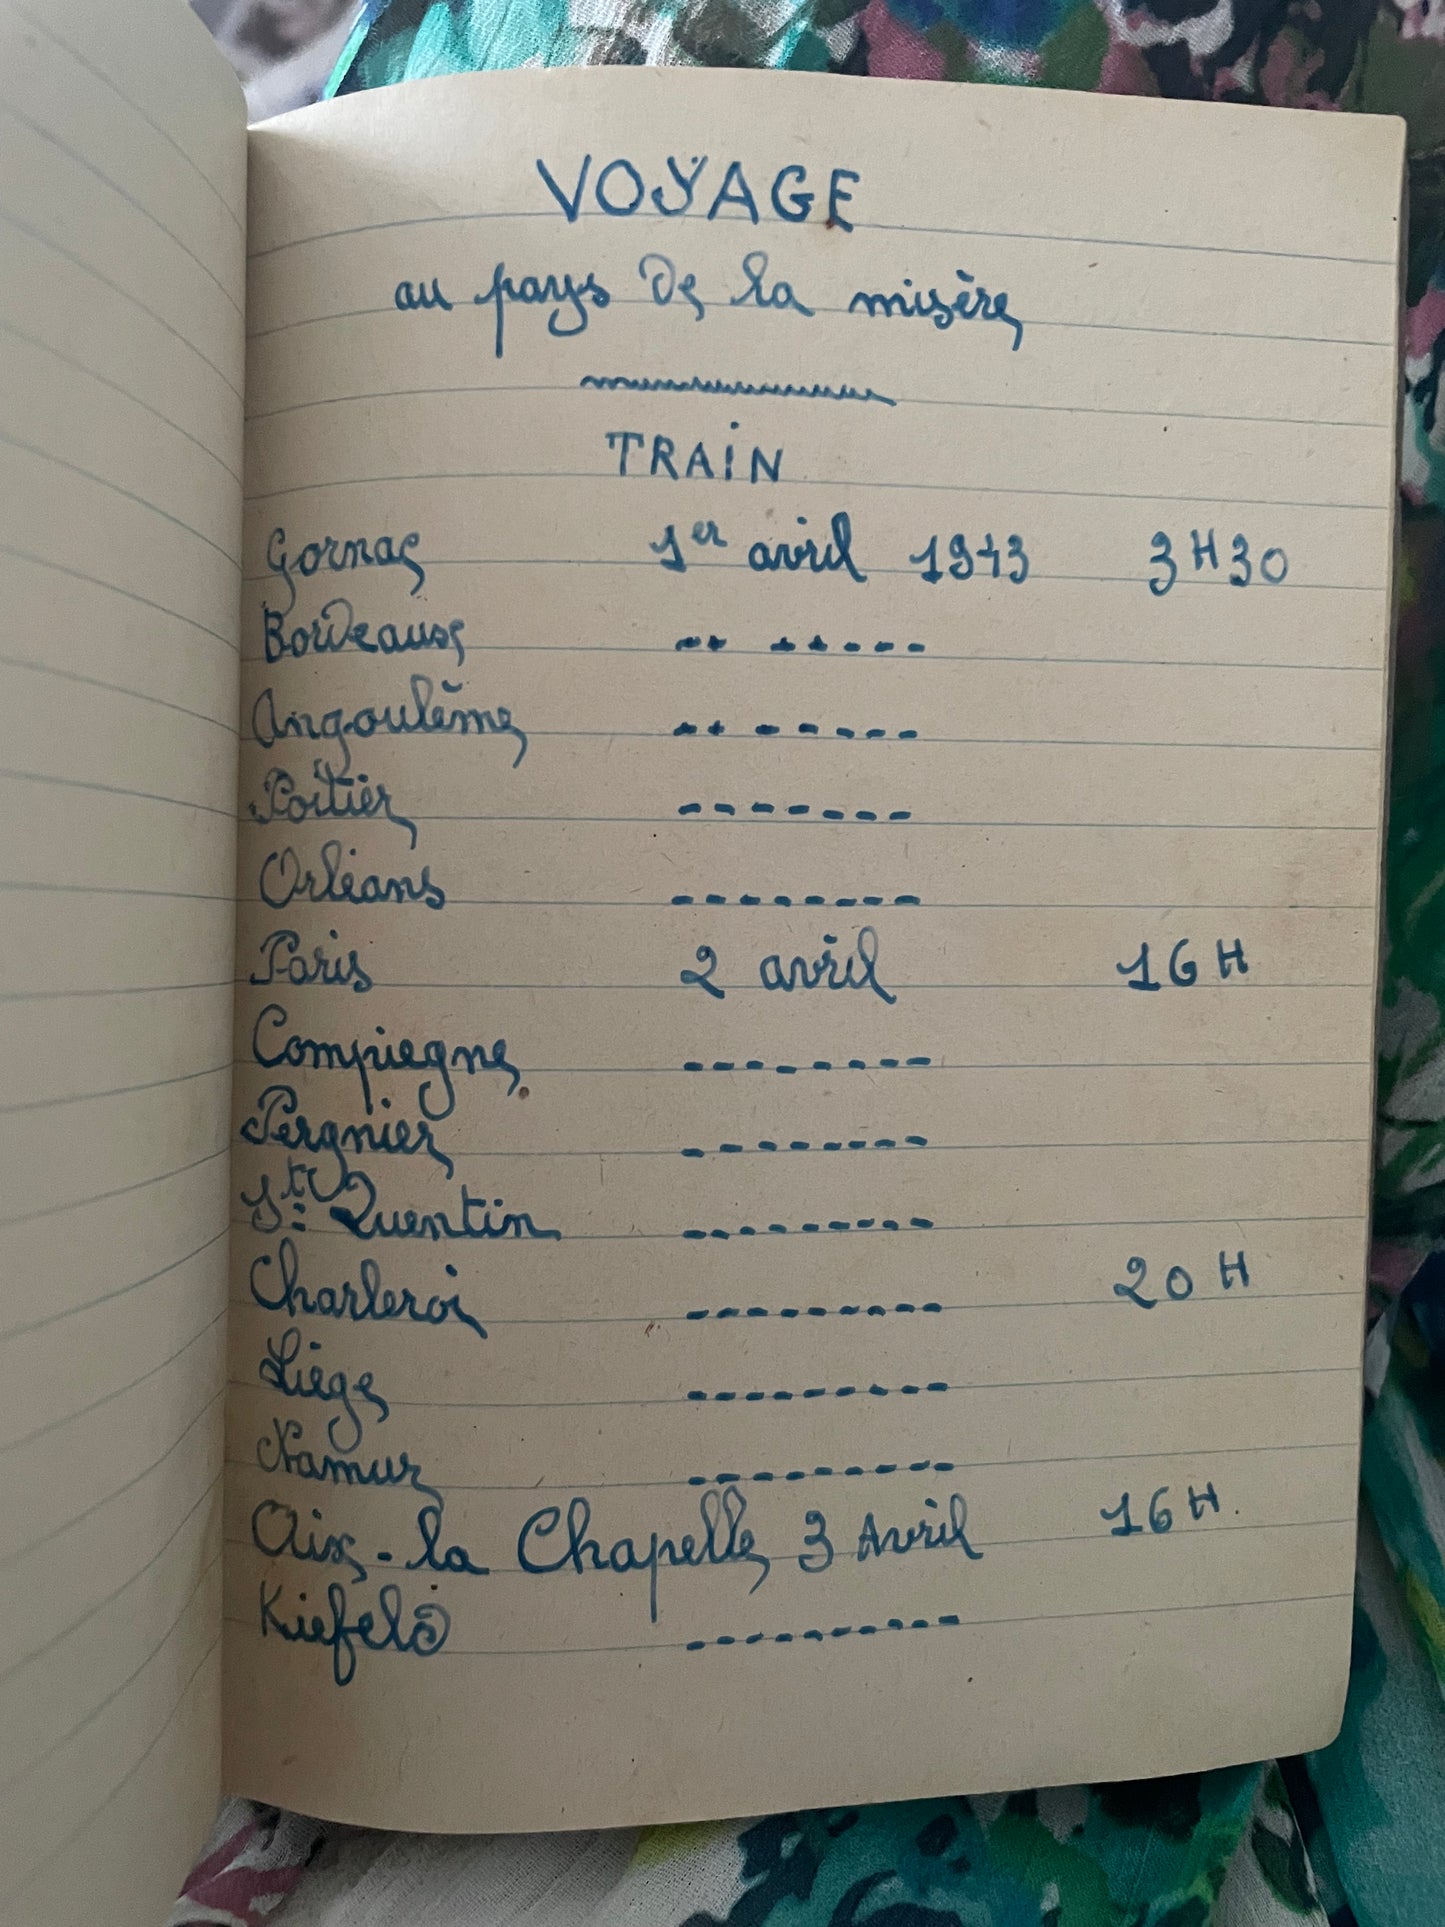 VOYAGE
au pays de la misère
TRAIN
Gornac 1er avril 1943 3H30
Bordeaux
Angoulème
Poitier
Orléans
Paris 2 avril 16H
Compiegne
Pergnier
St: Quentin
Charleroi 20H
Liège
Namur
Aix-la Chapelle 3 Avril 16H.
Kiefeld